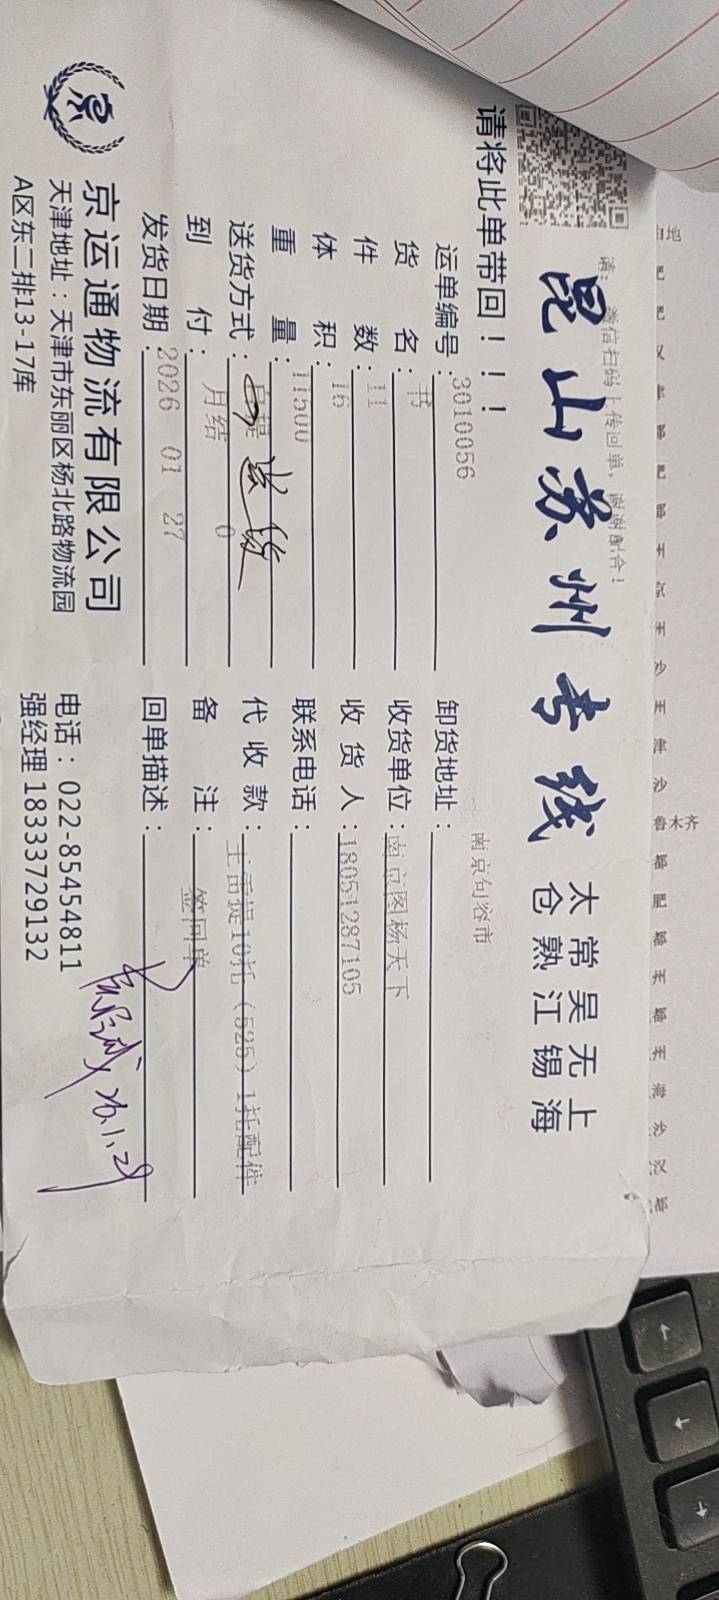 请将此单带回！！！
请: 微信扫码上传回单，谢谢配合！
昆山苏州专线
太 常 吴 无 上
仓 熟 江 锡 海
运单编号：3010056
货名：书
件数：11
体积：16
重量：11500
送货方式：自提 送货
到付：月结 0
发货日期：2026 01 27
卸货地址：南京句容市
收货单位：南京图杨天下
收货人：18051287105
联系电话：
代收款：
备注：王雷提10托（525）1托配件
签回单
回单描述：
26.1.29
京运通物流有限公司
天津地址：天津市东丽区杨北路物流园
A区东二排13-17库
电话：022-85454811
强经理 18333729132
鲁木齐